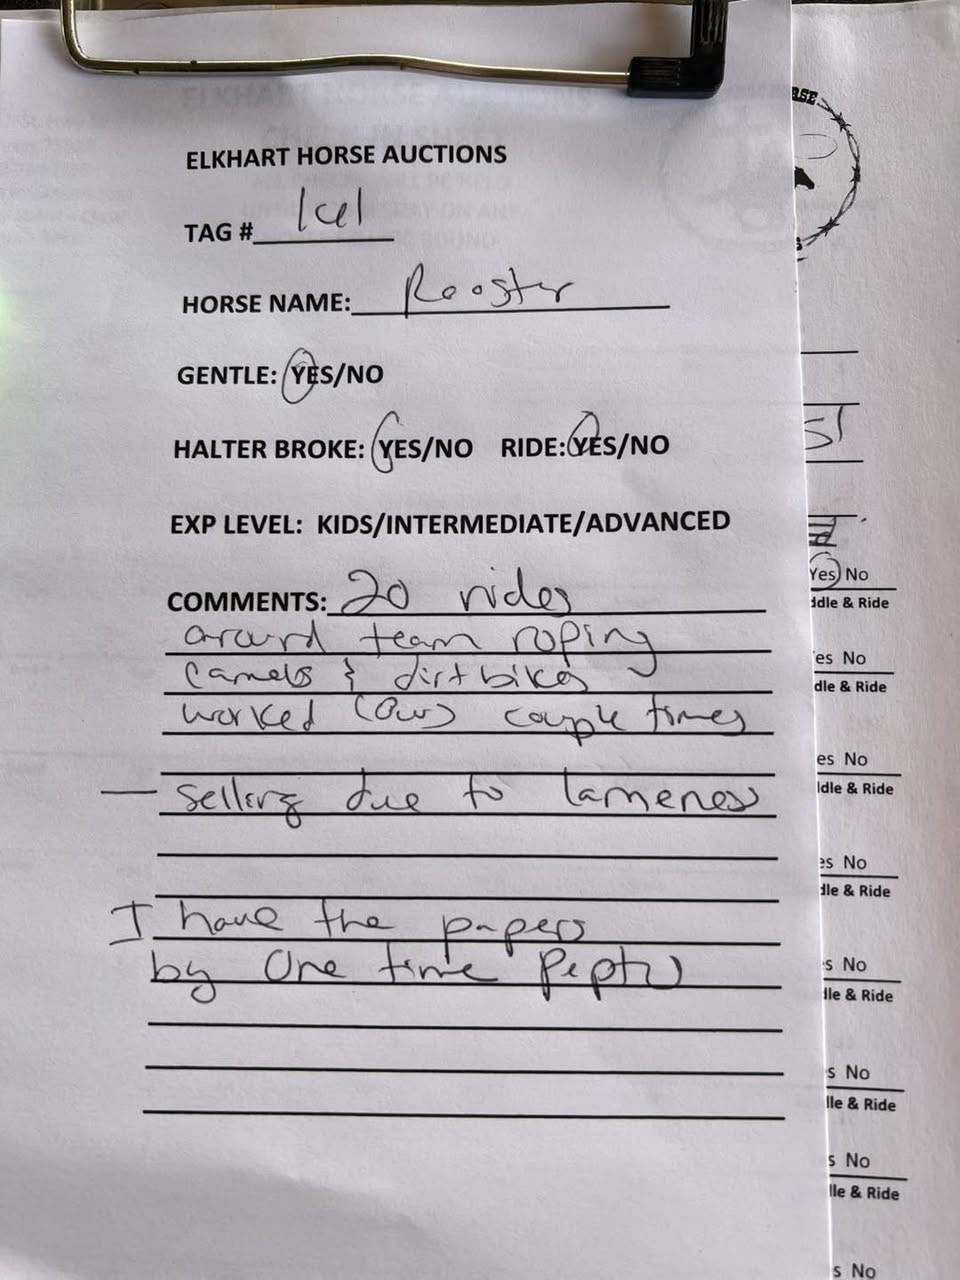 ELKHART HORSE AUCTIONS
TAG #
HORSE NAME: Rooster
GENTLE: YES/NO
HALTER BROKE: YES/NO RIDE: YES/NO
EXP LEVEL: KIDS/INTERMEDIATE/ADVANCED
COMMENTS: 20 rides
around team roping
camels & dirtbikes
worked cows couple times
— selling due to lameness
I have the papers
by One time Pepto
RSE
Yes No
ddle & Ride
es No
dle & Ride
es No
ddle & Ride
es No
dle & Ride
s No
dle & Ride
s No
lle & Ride
s No
lle & Ride
s No